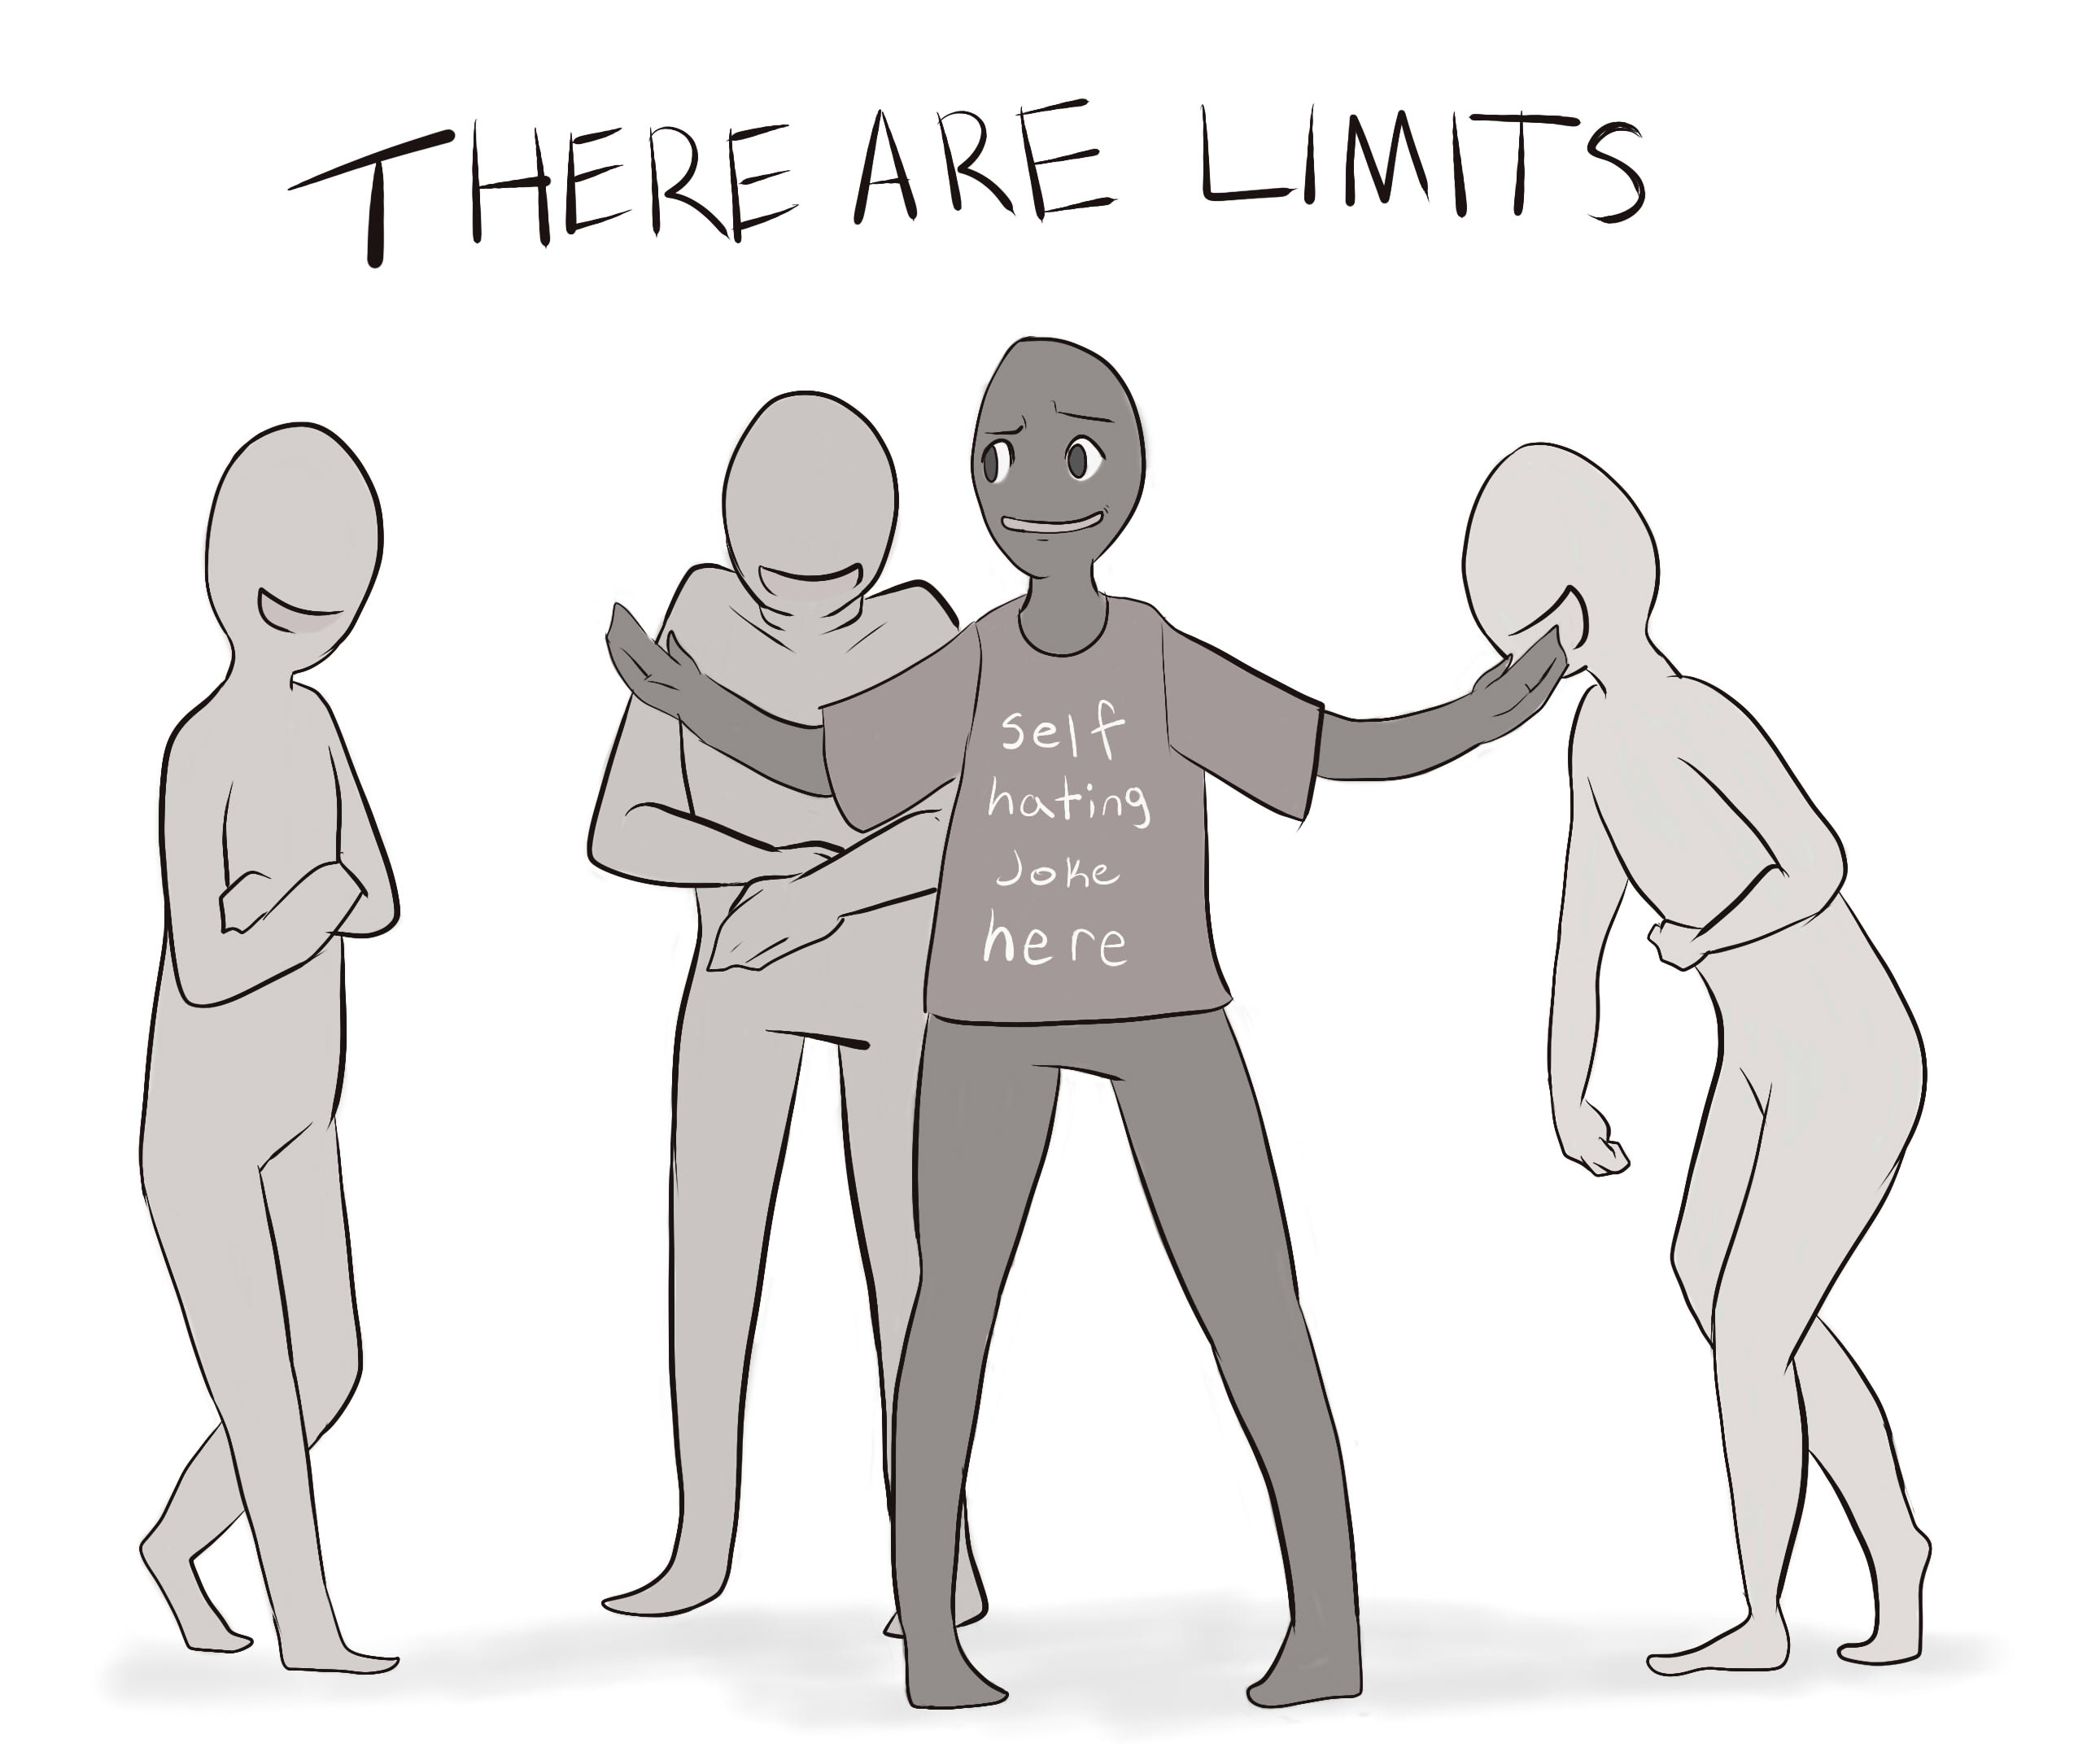 THERE ARE LIMITS
self
hating
Joke
here